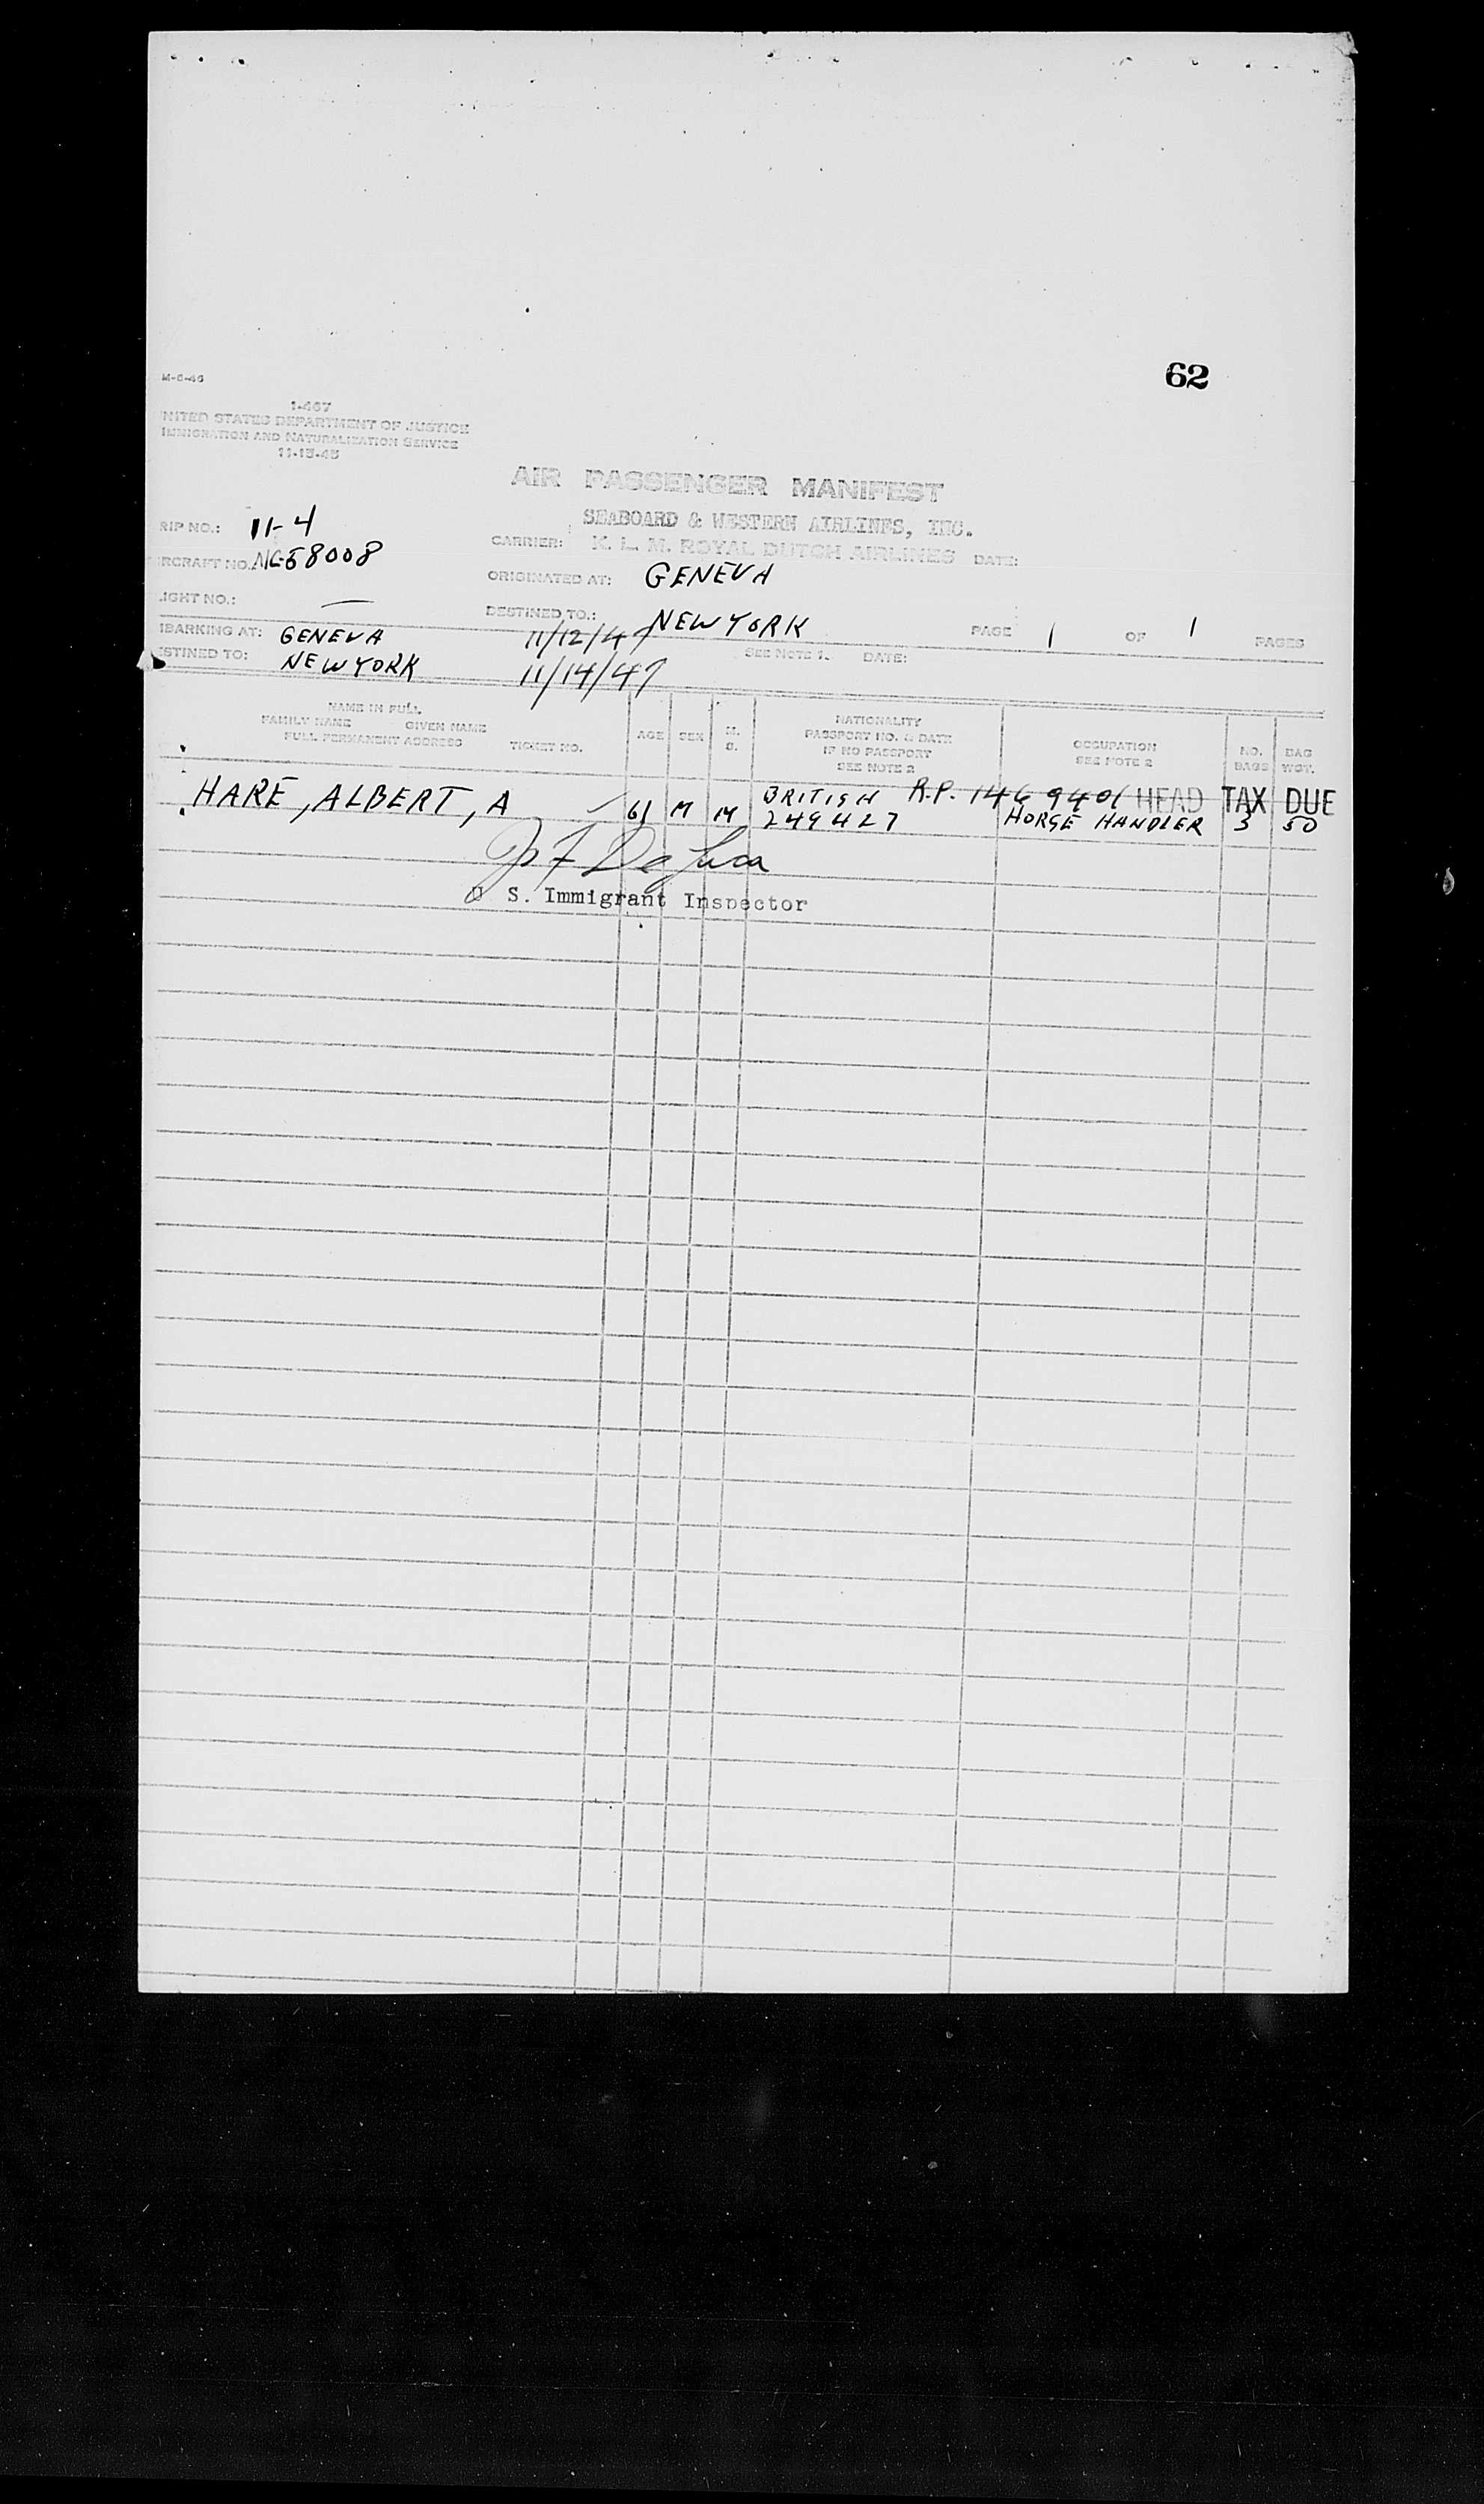 62
M-6-46
I-467
UNITED STATES DEPARTMENT OF JUSTICE
IMMIGRATION AND NATURALIZATION SERVICE
11-15-45
AIR PASSENGER MANIFEST
SEABOARD & WESTERN AIRLINES, INC.
RIP NO.: 11-4
CARRIER: K. L. M. ROYAL DUTCH AIRLINES DATE:
RCRAFT NO. NC58008
ORIGINATED AT: GENEVA
LIGHT NO.: —
DESTINED TO: NEW YORK
MBARKING AT: GENEVA 11/12/47
PAGE 1 OF 1 PAGES
ESTINED TO: NEW YORK 11/14/47
SEE NOTE 1. DATE:
NAME IN FULL
FAMILY NAME GIVEN NAME
FULL PERMANENT ADDRESS TICKET NO.
AGE SEX M. S.
NATIONALITY
PASSPORT NO. & DATE
IF NO PASSPORT
SEE NOTE 2
OCCUPATION
SEE NOTE 2
NO. BAGS
BAG WGT.
HARE, ALBERT, A 61 M M BRITISH R.P. 1469401 HEAD TAX DUE
249427 HORSE HANDLER 3 50
U S. Immigrant Inspector